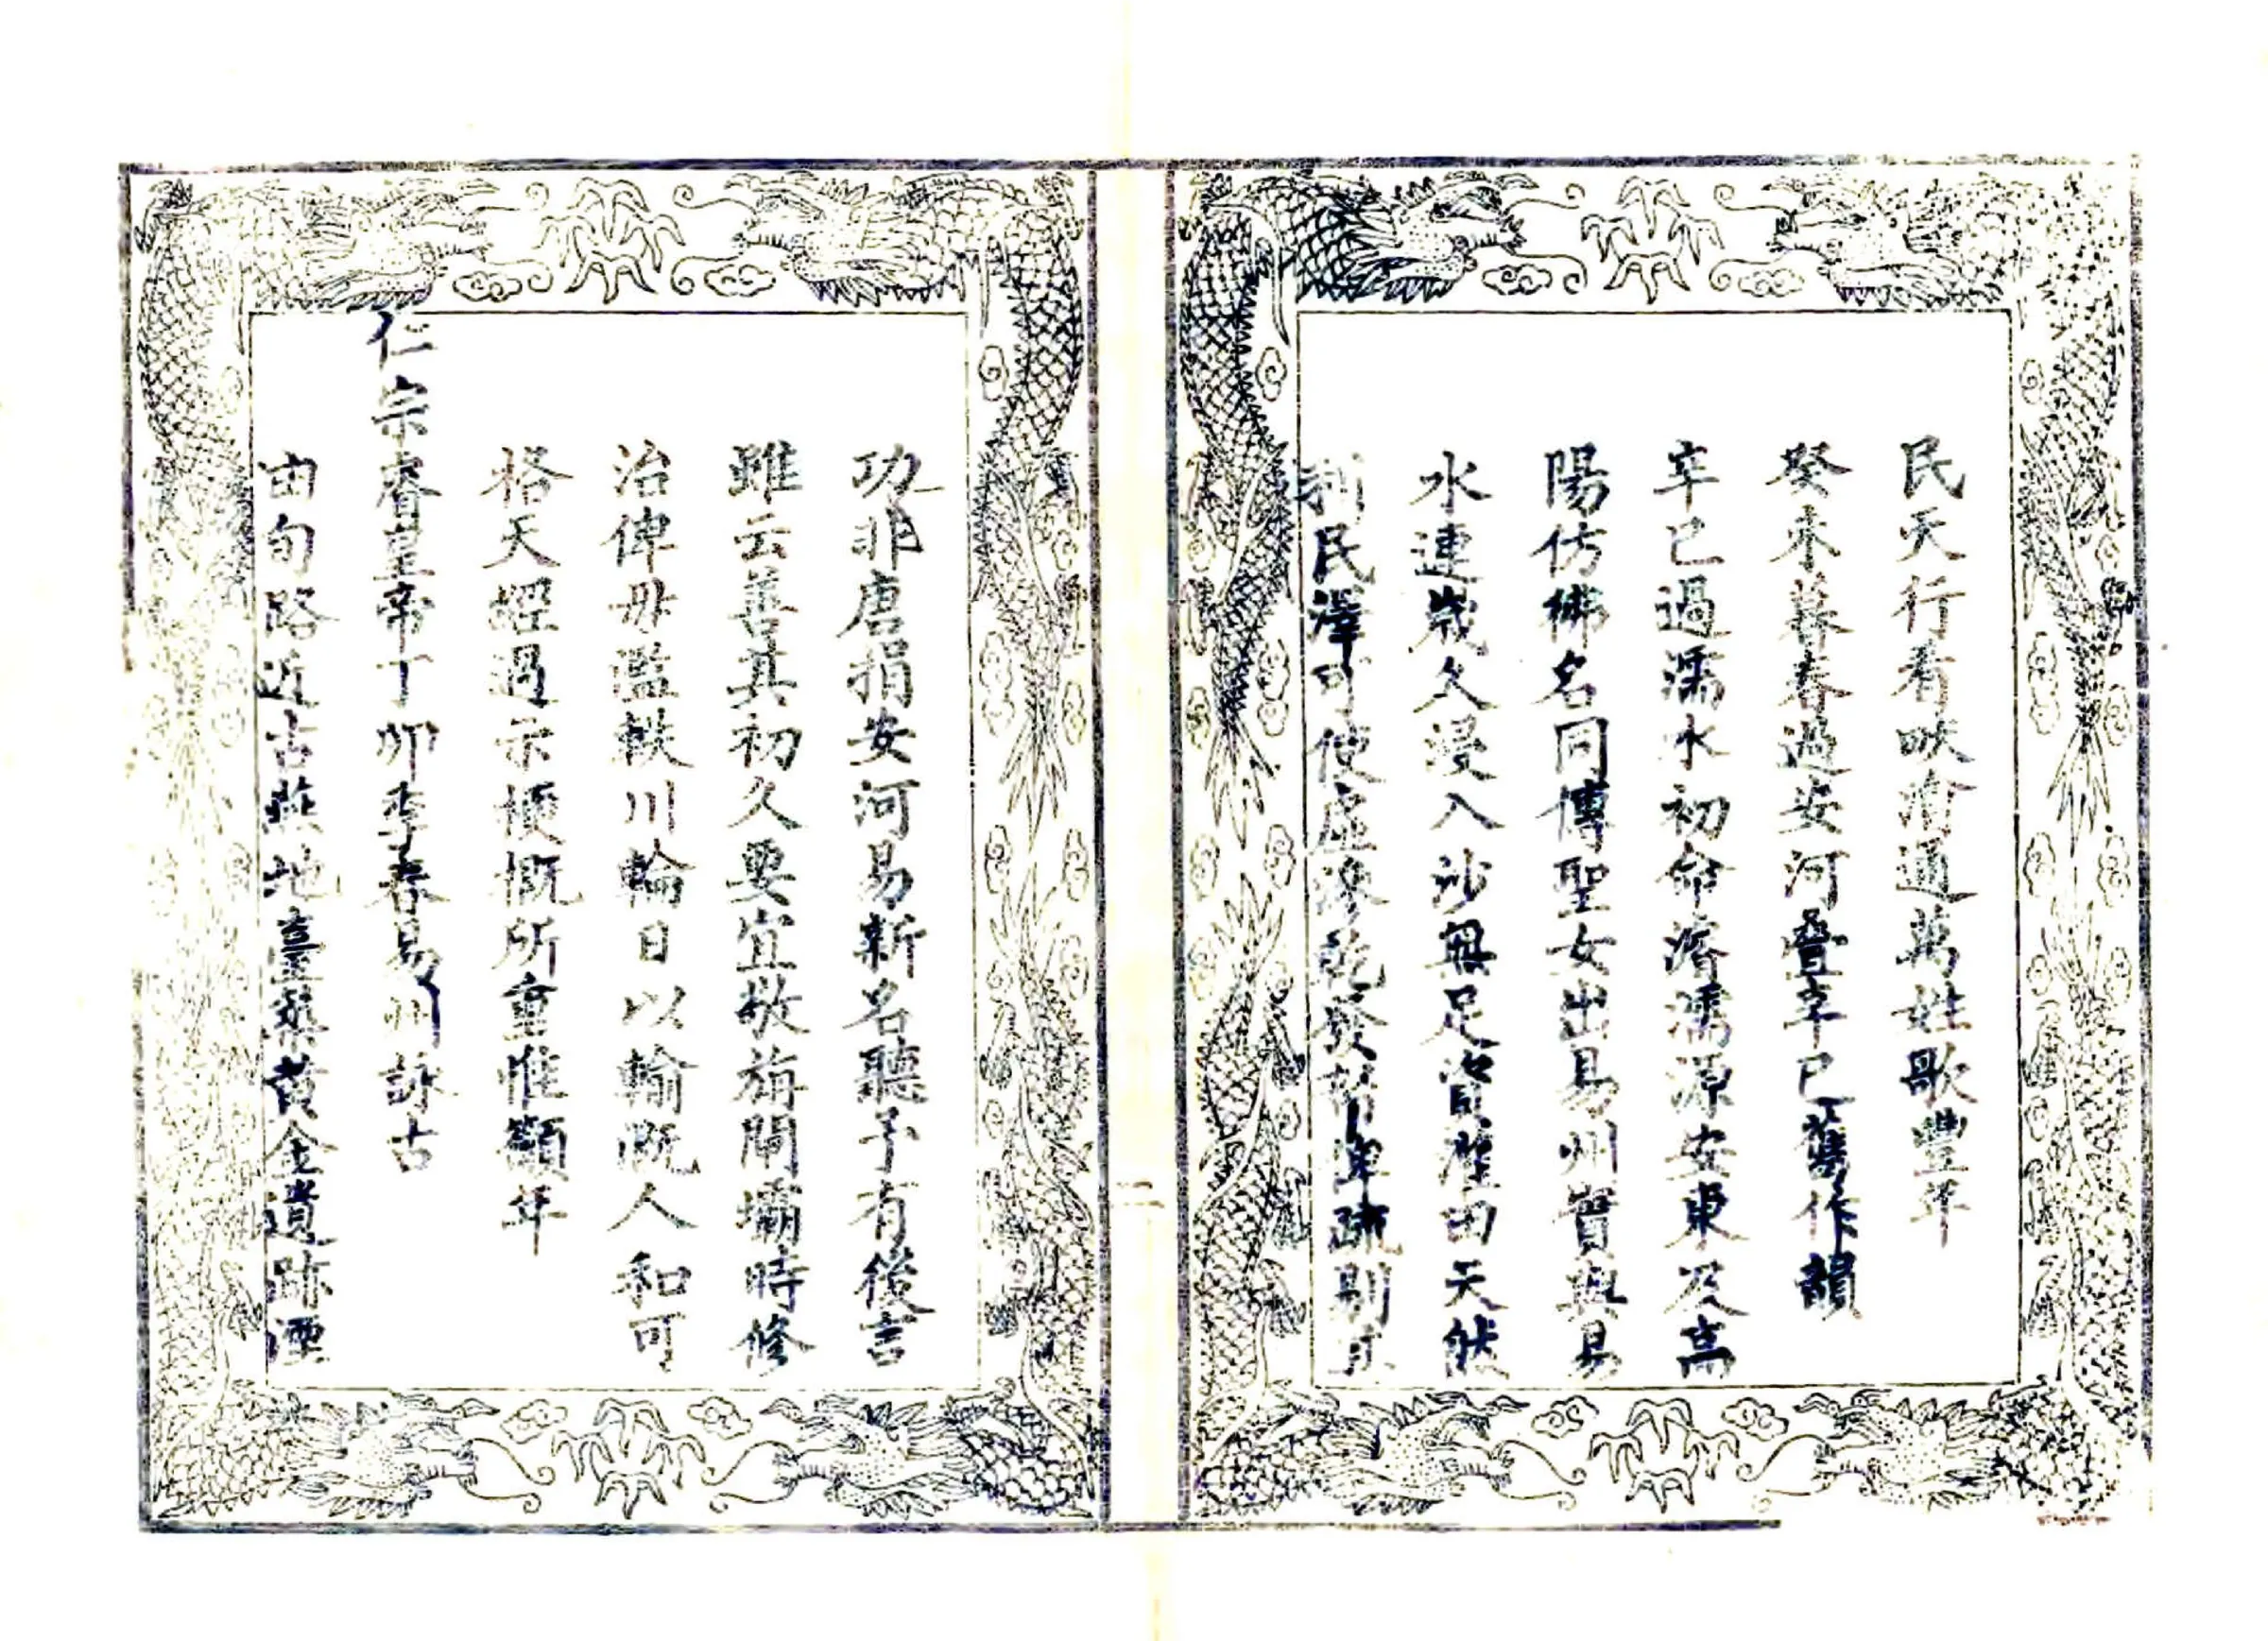 民天行看畎澮通萬姓歌豐年
癸未暮春過安河疊辛巳舊作韻
辛巳過濡水初命濬濡源安東及高
陽仿彿名同傳聖女出易州實與易
水連歲久浸入沙無足資灌田天然
利民澤可使虛 乾發帑事疏剔工
功非唐捐安河易新名聽予有後言
雖云善其初久要宜敬旃閘壩時修
治俾毋濫軼川輪日以輸溉人和可
格天經過示梗概所重惟籲年
仁宗睿皇帝丁卯季春易州詠古
由旬路近古燕地臺築黃金遺跡湮
二